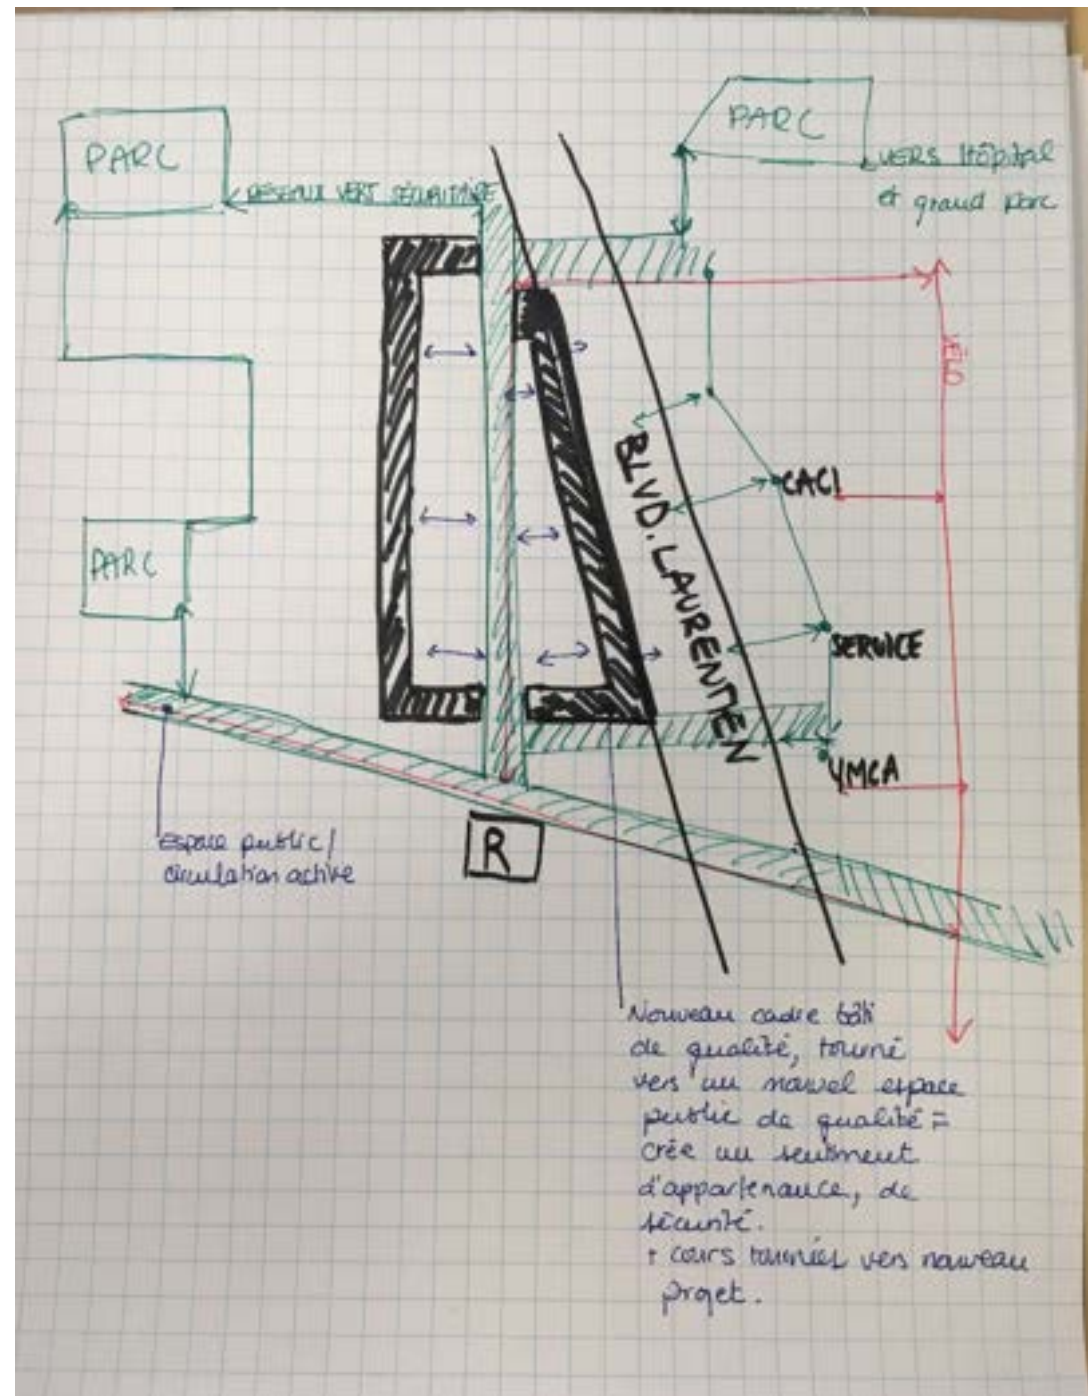 PARC
PARC
VERS Hôpital
et grand parc
RÉSEAUX VERT SÉCURITAIRE
PARC
BLVD. LAURENTIEN
CACI
SERVICE
YMCA
R
Espace public /
circulation active
Nouveau cadre bâti
de qualité, tourné
vers un nouvel espace
public de qualité =
crée un sentiment
d'appartenance, de
sécurité.
+ cours tournées vers nouveau
projet.